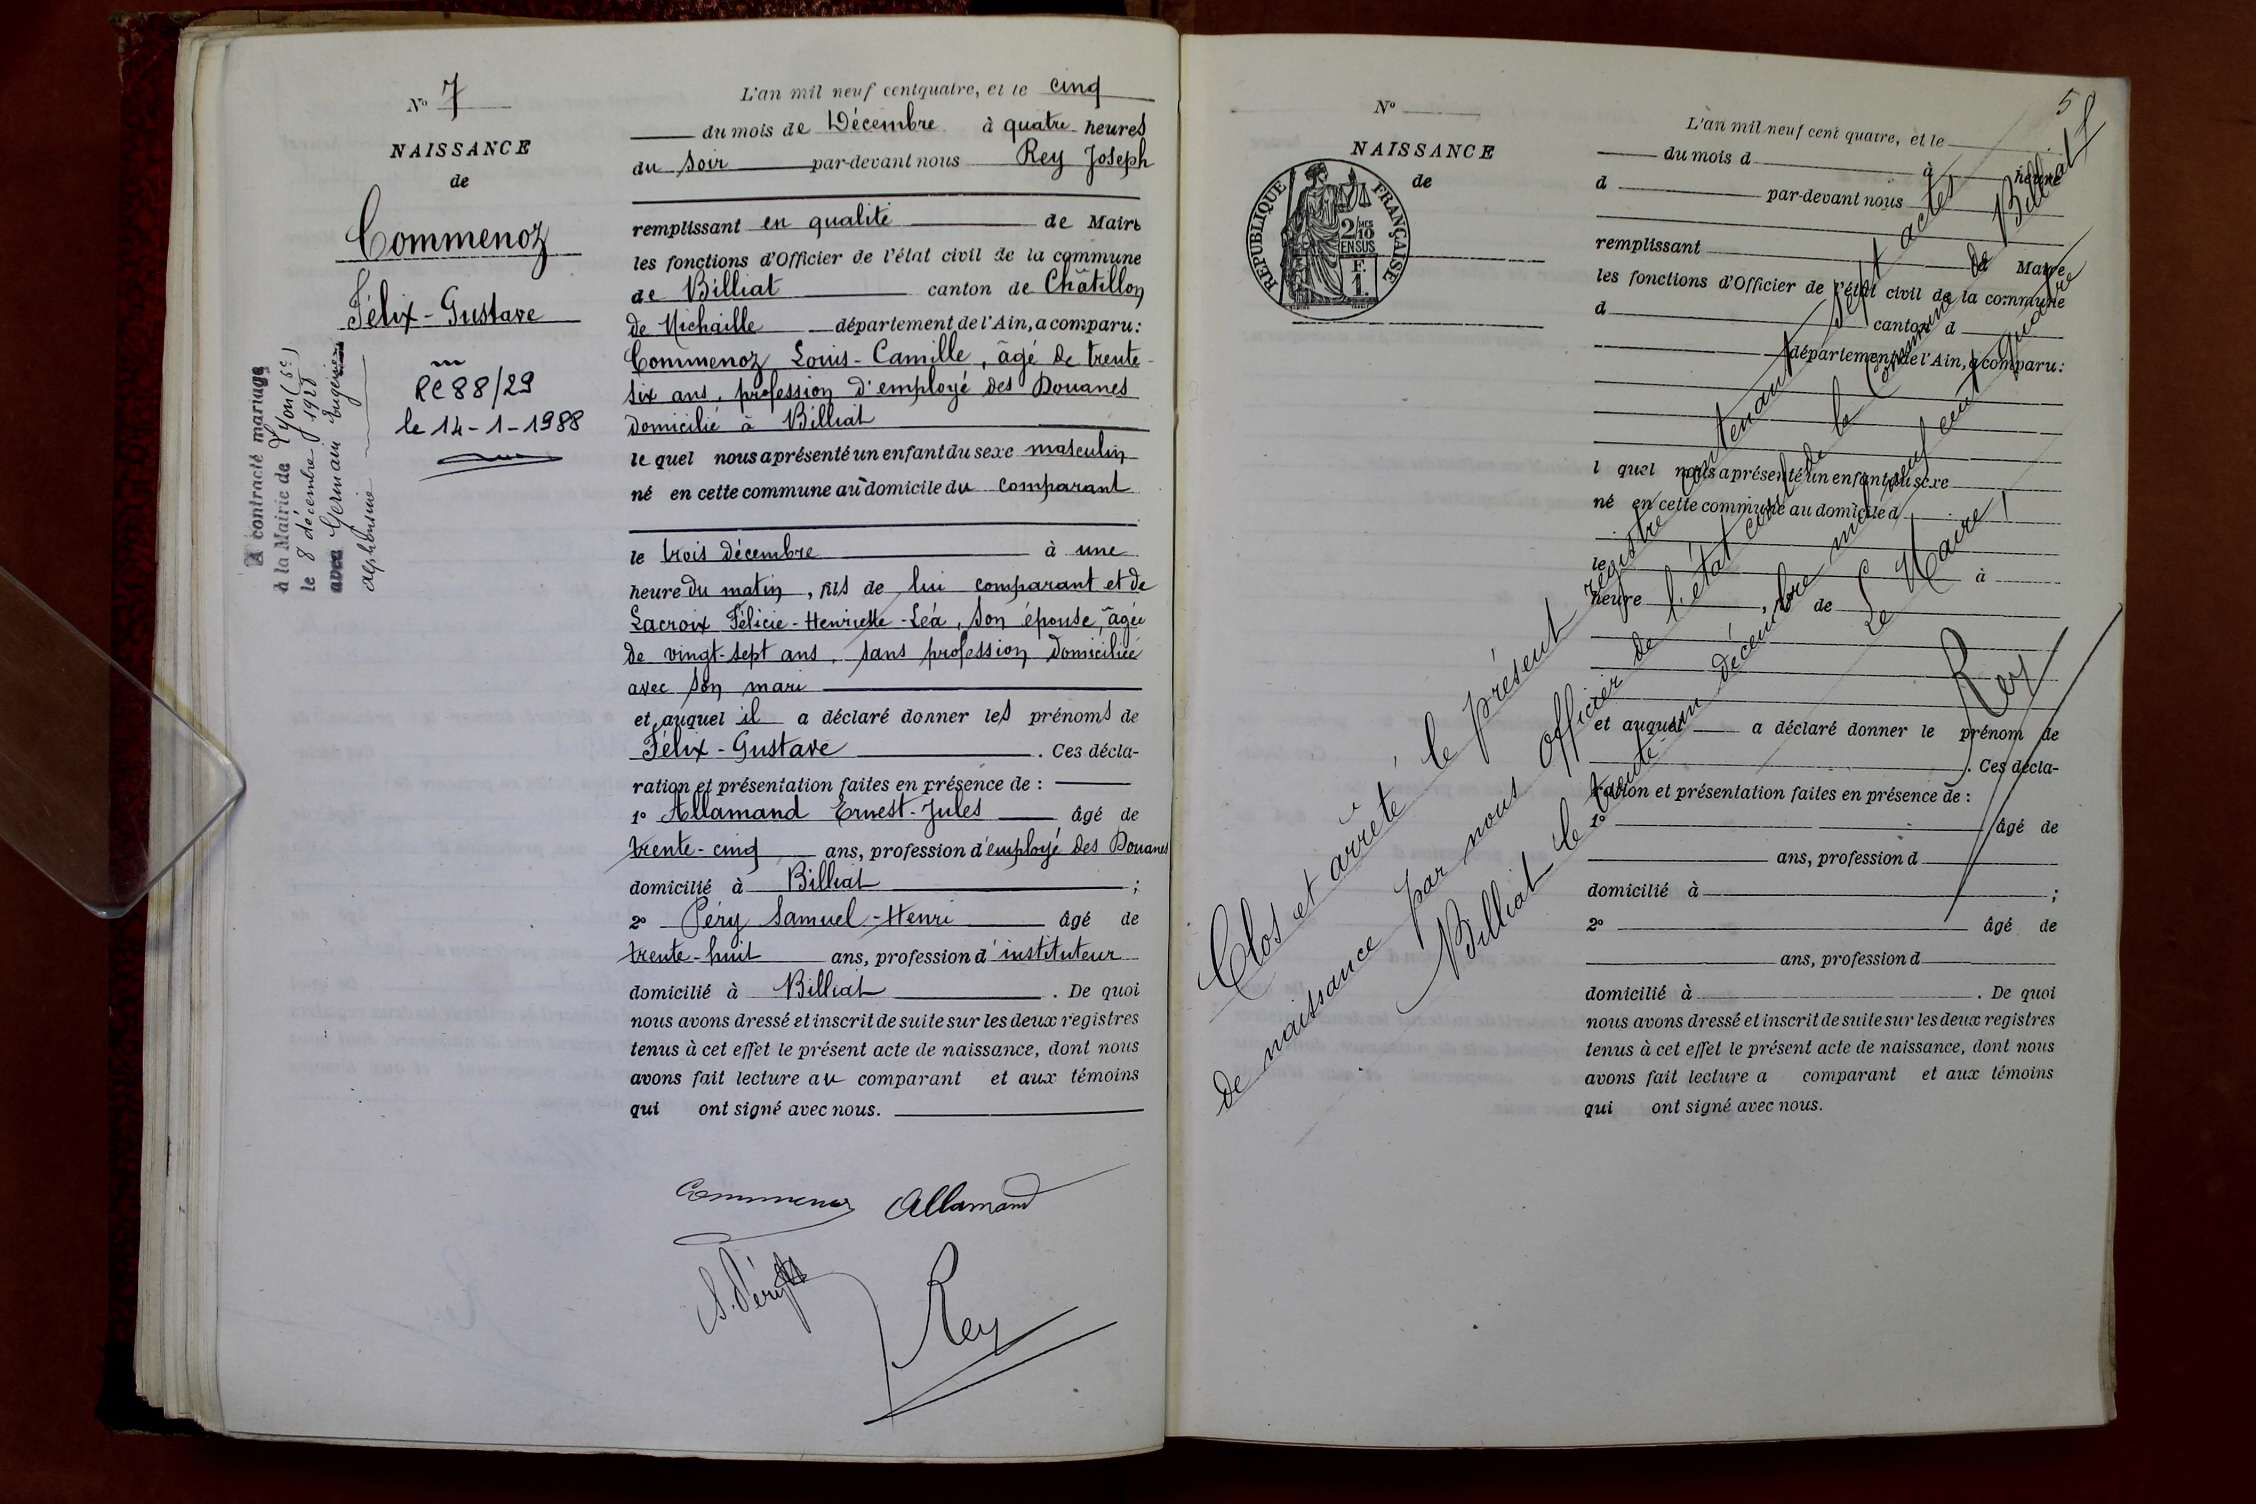 N° 7
NAISSANCE
de
Commenoz
Félix-Gustave
m
RC 88/29
le 14-1-1988
A contracté mariage
à la Mairie de Lyon (6e)
le 8 décembre 1928
avec Germain Eugénie
Alphonsine
L'an mil neuf cent quatre, et le cinq
du mois de Décembre à quatre heures
du soir par-devant nous Rey Joseph
remplissant en qualité de Maire
les fonctions d'Officier de l'état civil de la commune
de Billiat canton de Châtillon
de Michaille département de l'Ain, a comparu:
Commenoz Louis-Camille, âgé de trente-
six ans, profession d'employé des Douanes
domicilié à Billiat
le quel nous a présenté un enfant du sexe masculin
né en cette commune au domicile du comparant
le trois décembre à une
heure du matin, fils de lui comparant et de
Lacroix Félicie-Henriette-Léa, son épouse, âgée
de vingt-sept ans, sans profession domiciliée
avec son mari
et auquel il a déclaré donner les prénoms de
Félix-Gustave. Ces décla-
ration et présentation faites en présence de :
1° Allamand Ernest-Jules âgé de
trente-cinq ans, profession d'employé des Douanes
domicilié à Billiat ;
2° Péry Samuel-Henri âgé de
trente-huit ans, profession d'instituteur
domicilié à Billiat. De quoi
nous avons dressé et inscrit de suite sur les deux registres
tenus à cet effet le présent acte de naissance, dont nous
avons fait lecture au comparant et aux témoins
qui ont signé avec nous.
Commenoz Allamand
S. Péry
Rey
5
N°
NAISSANCE
de
RÉPUBLIQUE FRANÇAISE
2/10
EN SUS
F.
1.
L'an mil neuf cent quatre, et le
du mois d à heure
d par-devant nous
remplissant de Maire
les fonctions d'Officier de l'état civil de la commune
d canton d
département de l'Ain, a comparu:
l quel nous a présenté un enfant du sexe
né en cette commune au domicile d
le à
heure , de
et auquel a déclaré donner le prénom de
. Ces décla-
ration et présentation faites en présence de :
1° âgé de
ans, profession d
domicilié à ;
2° âgé de
ans, profession d
domicilié à . De quoi
nous avons dressé et inscrit de suite sur les deux registres
tenus à cet effet le présent acte de naissance, dont nous
avons fait lecture a comparant et aux témoins
qui ont signé avec nous.
Clos et arrêté le présent registre contenant sept actes
de naissance par nous officier de l'état civil de la Commune de Billiat
Billiat le trente-un décembre mil neuf cent quatre
Le Maire,
Rey